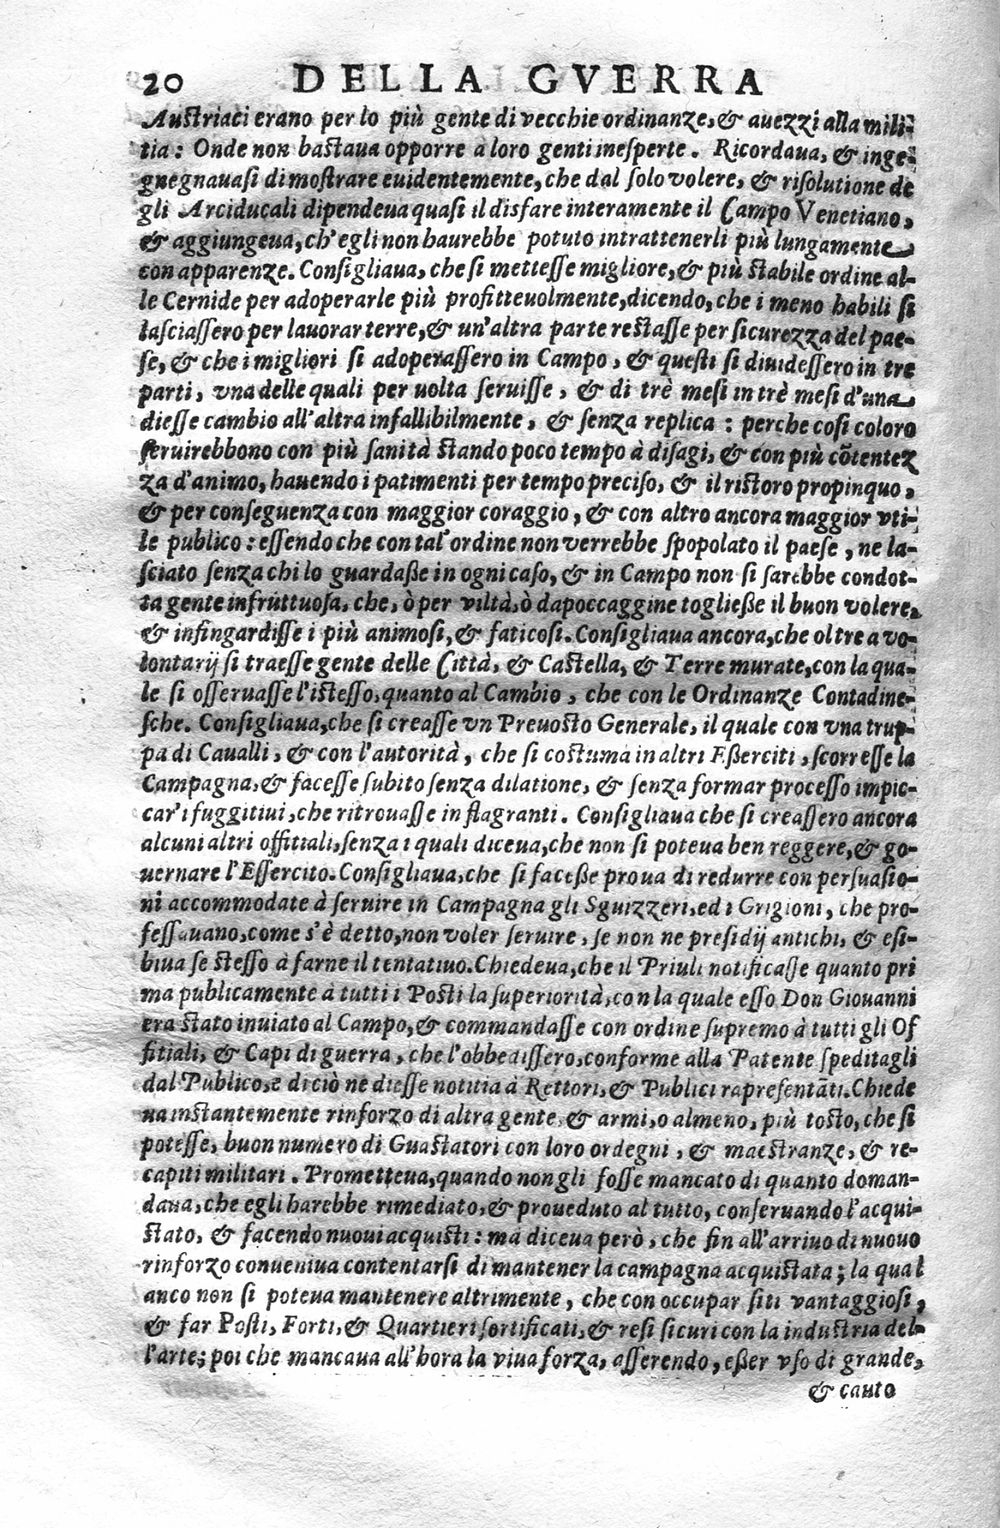 20 DELLA GVERRA
Austriaci erano per lo più gente di vecchie ordinanze, & auezzi alla mili-
tia: Onde non bastaua opporre a loro genti inesperte. Ricordaua, & inge-
gnegnauasi di mostrare euidentemente, che dal solo volere, & risolutione de
gli Arciducali dipendeua quasi il disfare interamente il Campo Venetiano,
& aggiungeua, ch'egli non haurebbe potuto intrattenerli più lungamente
con apparenze. Consigliaua, che si mettesse migliore, & più stabile ordine al-
le Cernide per adoperarle più profitteuolmente, dicendo, che i meno habili si
lasciassero per lauorar terre, & un'altra parte restasse per sicurezza del pae-
se, & che i migliori si adoperassero in Campo, & questi si diuidessero in tre
parti, vna delle quali per uolta seruisse, & di trè mesi in trè mesi d'una
diesse cambio all'altra infallibilmente, & senza replica: perche cosi coloro
seruirebbono con più sanità stando poco tempo à disagi, & con più cõtentez
za d'animo, hauendo i patimenti per tempo preciso, & il ristoro propinquo,
& per conseguenza con maggior coraggio, & con altro ancora maggior vti-
le publico: essendo che con tal'ordine non verrebbe spopolato il paese, ne la-
sciato senza chi lo guardaße in ogni caso, & in Campo non si sarebbe condot-
ta gente infruttuosa, che, ò per viltà, ò dapoccaggine togließe il buon volere,
& infingardisse i più animosi, & faticosi. Consigliaua ancora, che oltre a vo-
lontarij si traesse gente delle Città, & Castella, & Terre murate, con la qua-
le si osseruasse l'istesso, quanto al Cambio, che con le Ordinanze Contadine-
sche. Consigliaua, che si creasse vn Preuosto Generale, il quale con vna trup-
pa di Caualli, & con l'autorità, che si costuma in altri Eßerciti, scorresse la
Campagna, & facesse subito senza dilatione, & senza formar processo impic-
car'i fuggitiui, che ritrouasse in flagranti. Consigliaua che si creassero ancora
alcuni altri offitiali, senza i quali diceua, che non si poteua ben reggere, & go-
uernare l'Essercito. Consigliaua, che si faceße proua di redurre con persuasio-
ni accommodate à seruire in Campagna gli Sguizzeri, ed i Grigioni, che pro-
fessauano, come s'è detto, non voler seruire, se non ne presidij antichi, & esi-
biua se stesso à farne il tentatiuo. Chiedeua, che il Priuli notificasse quanto pri
ma publicamente à tutti i Posti la superiorità, con la quale esso Don Giouanni
era stato inuiato al Campo, & commandasse con ordine supremo à tutti gli Of
fitiali, & Capi di guerra, che l'obbedissero, conforme alla Patente speditagli
dal Publico, e di ciò ne diesse notitia à Rettori, & Publici rapresentãti. Chiede
ua instantemente rinforzo di altra gente, & armi, o almeno, più tosto, che si
potesse, buon numero di Guastatori con loro ordegni, & maestranze, & re-
capiti militari. Prometteua, quando non gli fosse mancato di quanto doman-
daua, che egli harebbe rimediato, & proueduto al tutto, conseruando l'acqui-
stato, & facendo nuoui acquisti: ma diceua però, che fin all'arriuo di nuouo
rinforzo conueniua contentarsi di mantener la campagna acquistata; la qual
anco non si poteua mantenere altrimente, che con occupar siti vantaggiosi,
& far Posti, Forti, & Quartieri fortificati, & resi sicuri con la industria del-
l'arte; poi che mancaua all'hora la viua forza, asserendo, eßer vso di grande,
& cauto